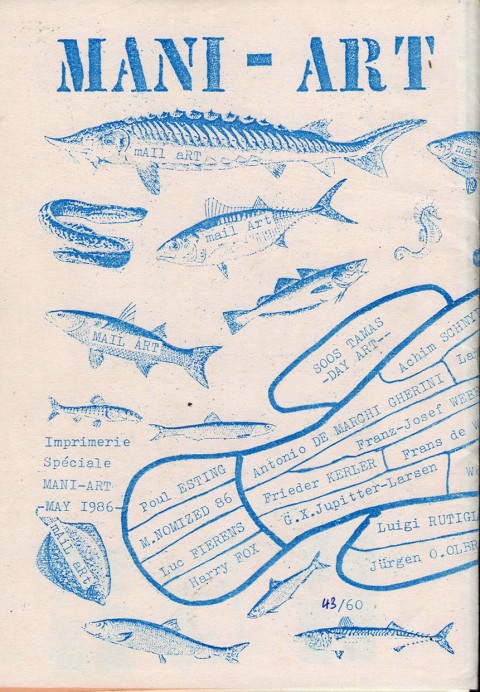 MANI-ART
mAIL aRT
mail
mail Art
MAIL ART
SOOS TAMAS
-DAY ART--
Achim SCHNY
La
Antonio DE MARCHI GHERINI
Franz-Josef WEBE
Imprimerie
Spéciale
MANI-ART
-MAY 1986-
Poul ESTING
M.NOMIZED 86
Luc FIERENS
Harry FOX
Frieder KERLER
Frans de
G.X.Jupitter-Larsen
Luigi RUTIGL
Jürgen O.OLBR
mAIL aRt
43/60